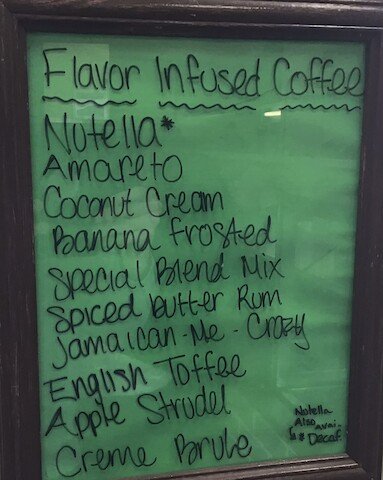 Flavor Infused Coffee
Nutella*
Amareto
Coconut Cream
Banana Frosted
Special Blend Mix
Spiced butter Rum
Jamaican-Me-Crazy
English Toffee
Apple Strudel
Creme Brule
Nutella
Also
avai-
* Decaf.